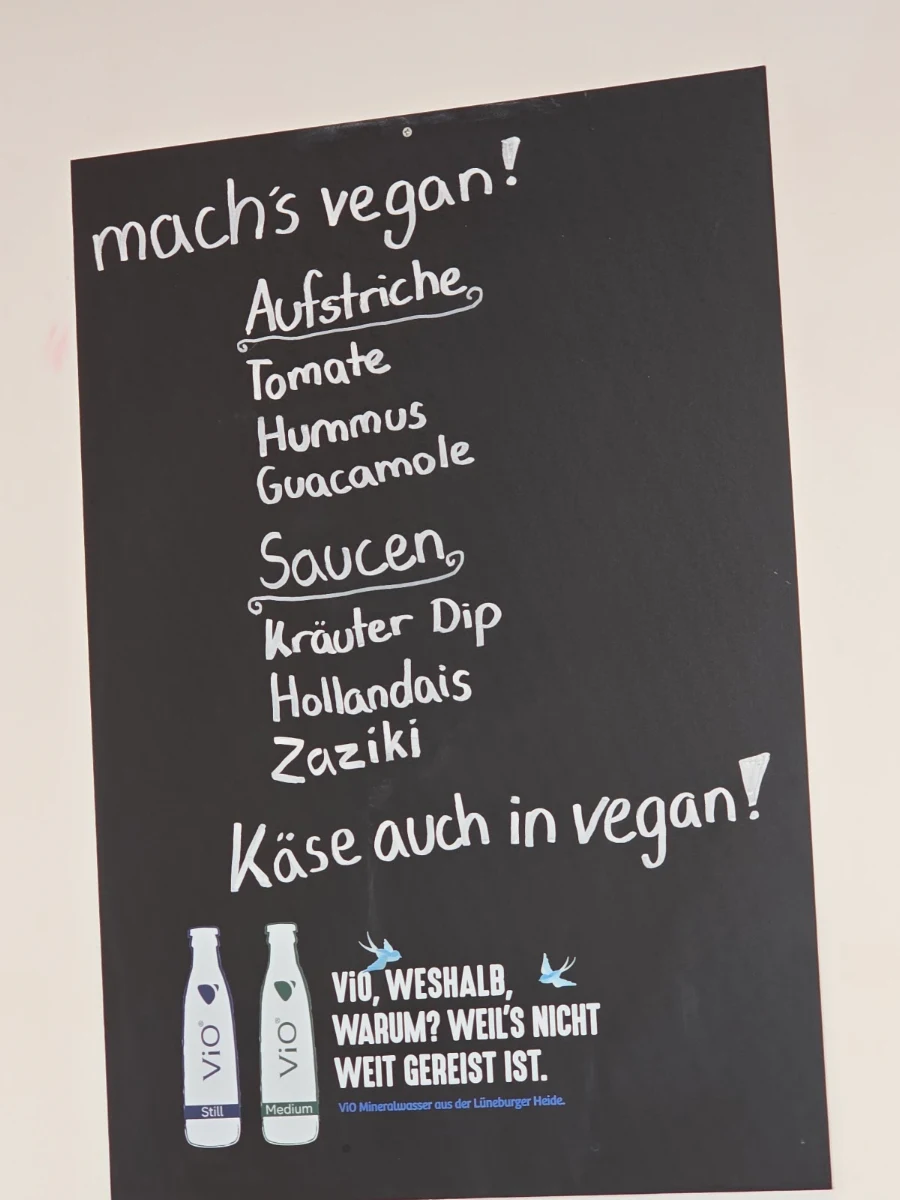 mach's vegan!
Aufstriche
Tomate
Hummus
Guacamole
Saucen
Kräuter Dip
Hollandais
Zaziki
Käse auch in vegan!
ViO®
Still
ViO®
Medium
ViO, WESHALB,
WARUM? WEIL'S NICHT
WEIT GEREIST IST.
ViO Mineralwasser aus der Lüneburger Heide.